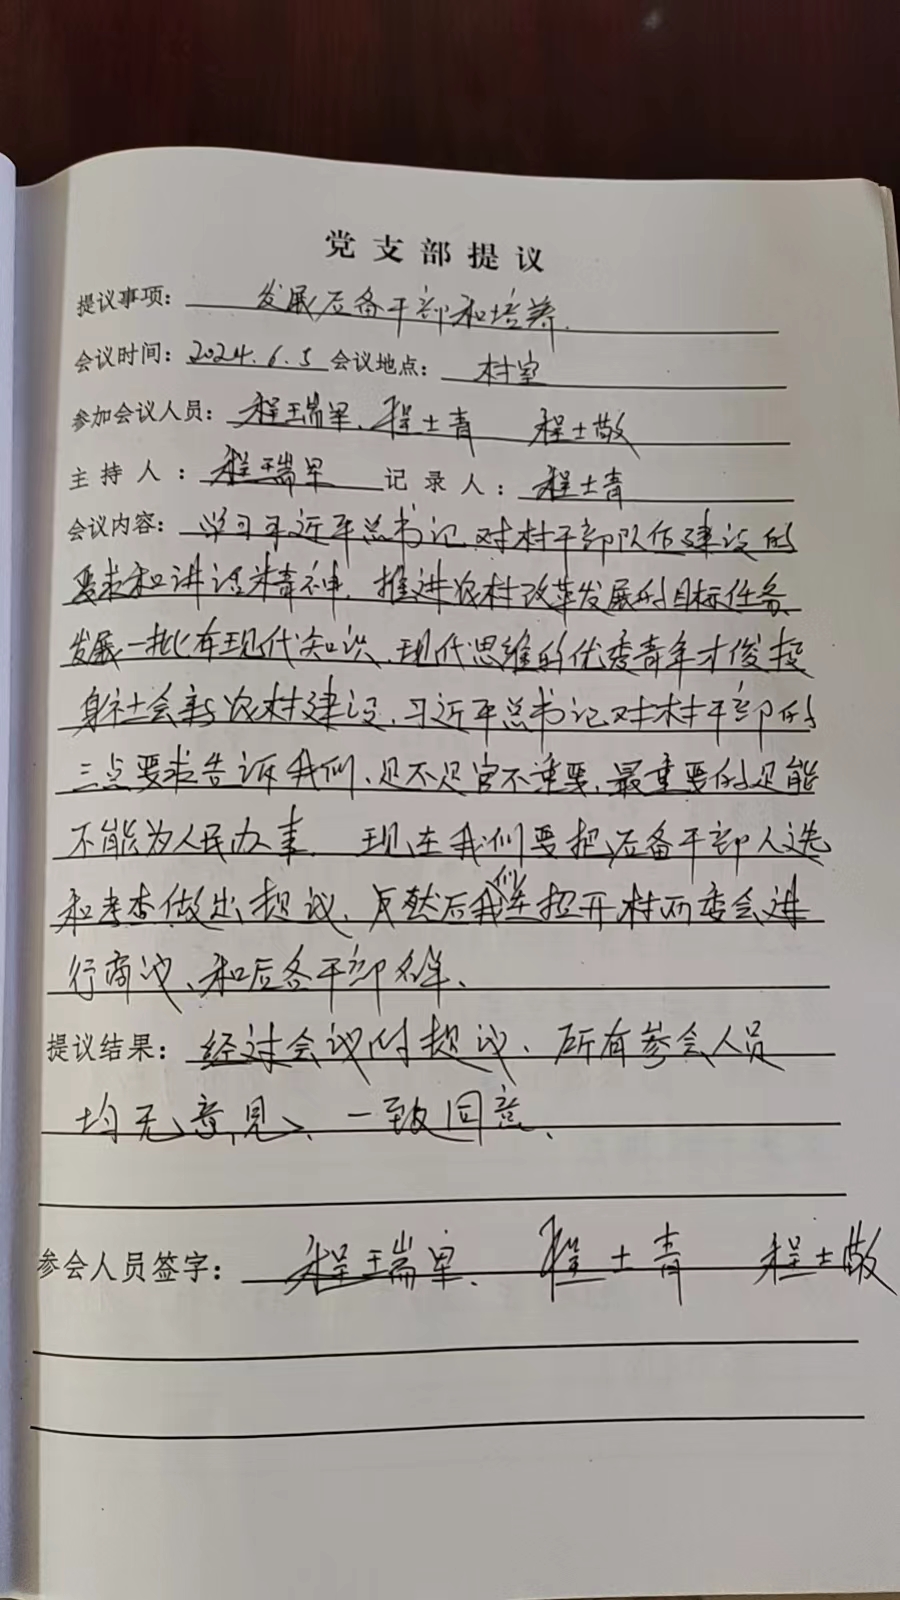 党支部提议
提议事项: 发展后备干部和培养.
会议时间: 2024.6.5 会议地点: 村室
参加会议人员: 程瑞军、程士青 程士敬
主持人: 程瑞军 记录人: 程士青
会议内容: 学习习近平总书记对村干部队伍建设的
要求和讲话精神、推进农村改革发展的目标任务、
发展一批有现代知识、现代思维的优秀青年才俊投
身社会新农村建设、习近平总书记对村干部的
三点要求告诉我们、是不是官不重要、最重要的是能
不能为人民办事. 现在我们要把后备干部人选
和考查做出提议、然后我们在招开村两委会进
行商议、和后备干部名单、
提议结果: 经过会议的提议、所有参会人员
均无意见、一致同意、
参会人员签字: 程瑞军、程士青 程士敬